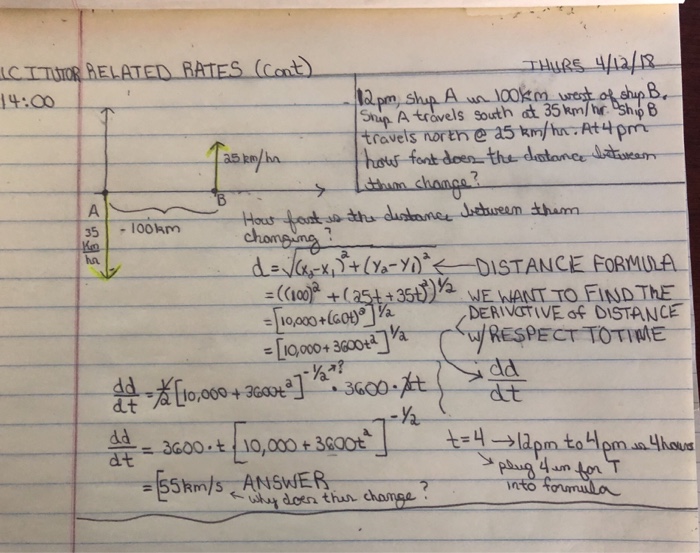 LCITUTOR RELATED RATES (Cont)
THURS 4/12/18
14:00
12pm, Ship A is 100km west of ship B.
Ship A travels south at 35km/hr. Ship B
travels north @ 25 km/hr. At 4pm
how fast does the distance between
them change?
25 km/hr
A
B
35
Km
hr
-100km
How fast is the distance between them
changing?
d = √(x₂-x₁)² + (y₂-y₁)² ← DISTANCE FORMULA
= ((100)² + (25t+35t)²)^1/2
WE WANT TO FIND THE
= [10,000+(60t)²]^1/2
DERIVATIVE of DISTANCE
= [10,000+3600t²]^1/2
W/ RESPECT TO TIME
dd/dt
dd/dt = 1/2 [10,000 + 3600t²]^-1/2 ? · 3600 · 2t
dd/dt = 3600·t [10,000 + 3600t²]^-1/2
t=4 → 12pm to 4pm is 4 hours
plug 4 in for T
into formula
= [55km/s ANSWER
← why does this change?